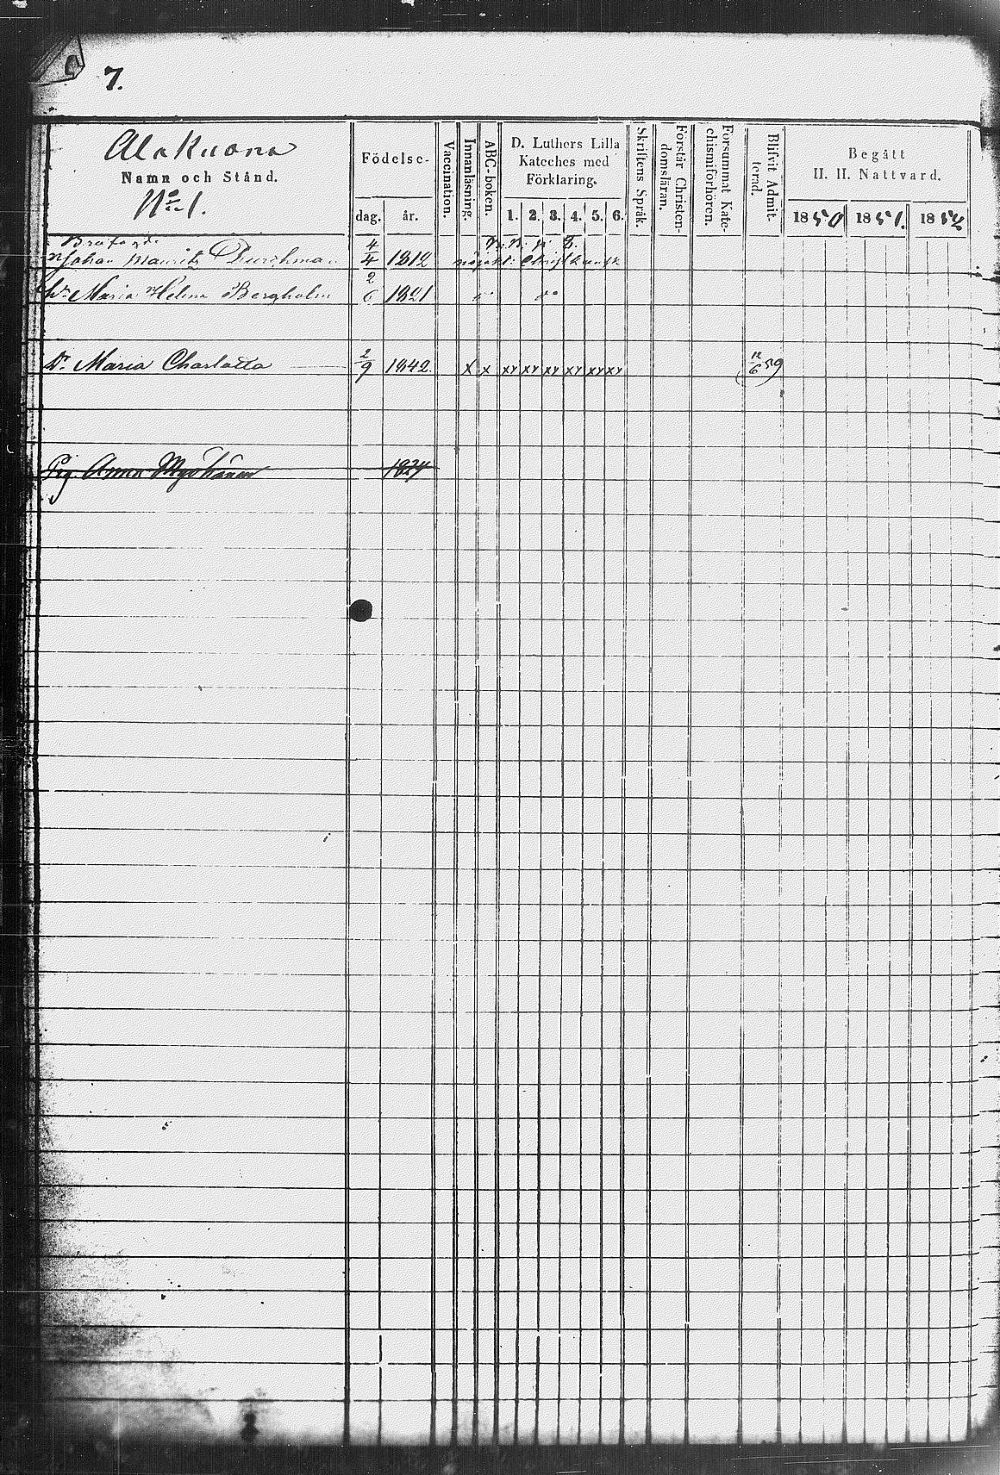 7.
Alakuona
Namn och Stånd.
No 1.
Födelse-
dag. år.
Vaccination.
Innanläsning.
ABC-boken.
D. Luthers Lilla
Kateches med
Förklaring.
1. 2. 3. 4. 5. 6.
Skriftens Språk.
Förstår Christen-
domsläran.
Försummat Kate-
chismiförhören.
Blifvit Admit-
terad.
Begått
H. H. Nattvard.
1850 1851. 1852
Johan Mauritz 4/4 1812
Hu Maria Helena Bergholm 2/6 1821
Dr Maria Charlotta 2/9 1842 x x xy xy xy xy xy xy 12/6 59
Pig. Anna 1824